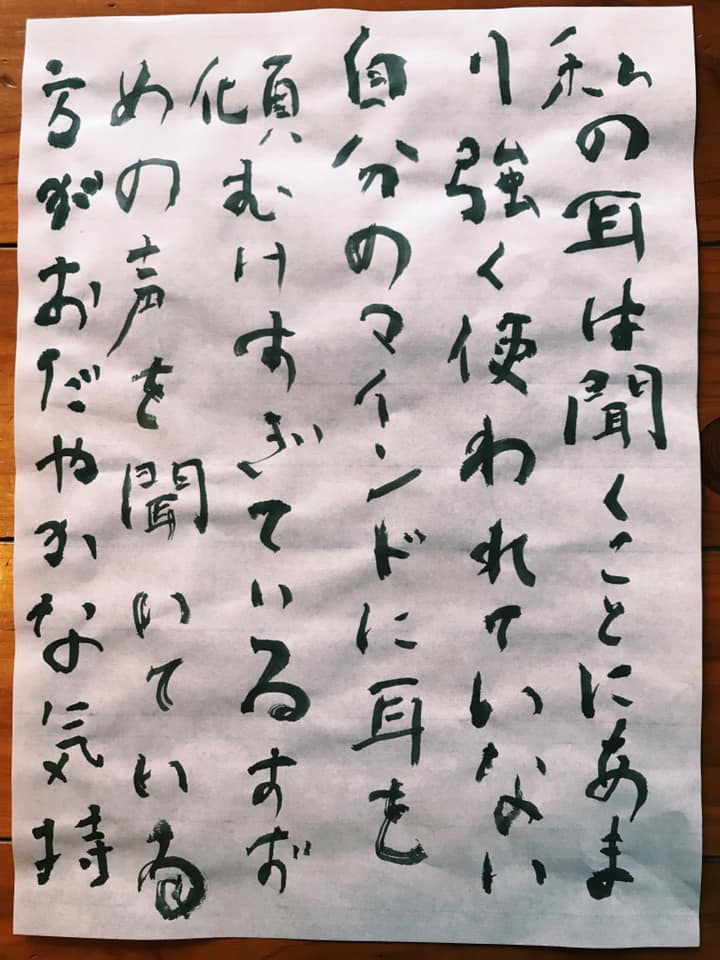 私の耳は聞くことにあま
り強く使われていない
自分のマインドに耳を
傾むけすぎているすず
めの声を聞いている
方がおだやかな気持